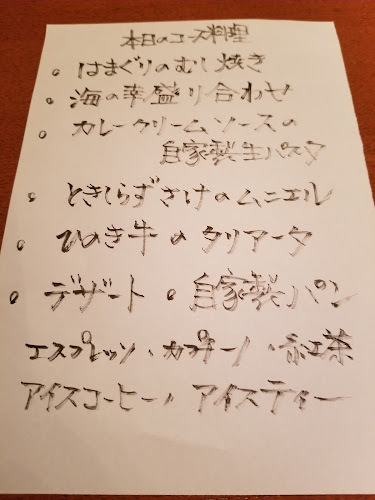 本日のコース料理
。はまぐりのむし焼き
。海の幸盛り合わせ
。カレークリームソースの
自家製生パスタ
。ときしらずさけのムニエル
。ひめき牛のタリアータ
。デザート。自家製パン
エスプレッソ・カプチーノ・紅茶
アイスコーヒー、アイスティー